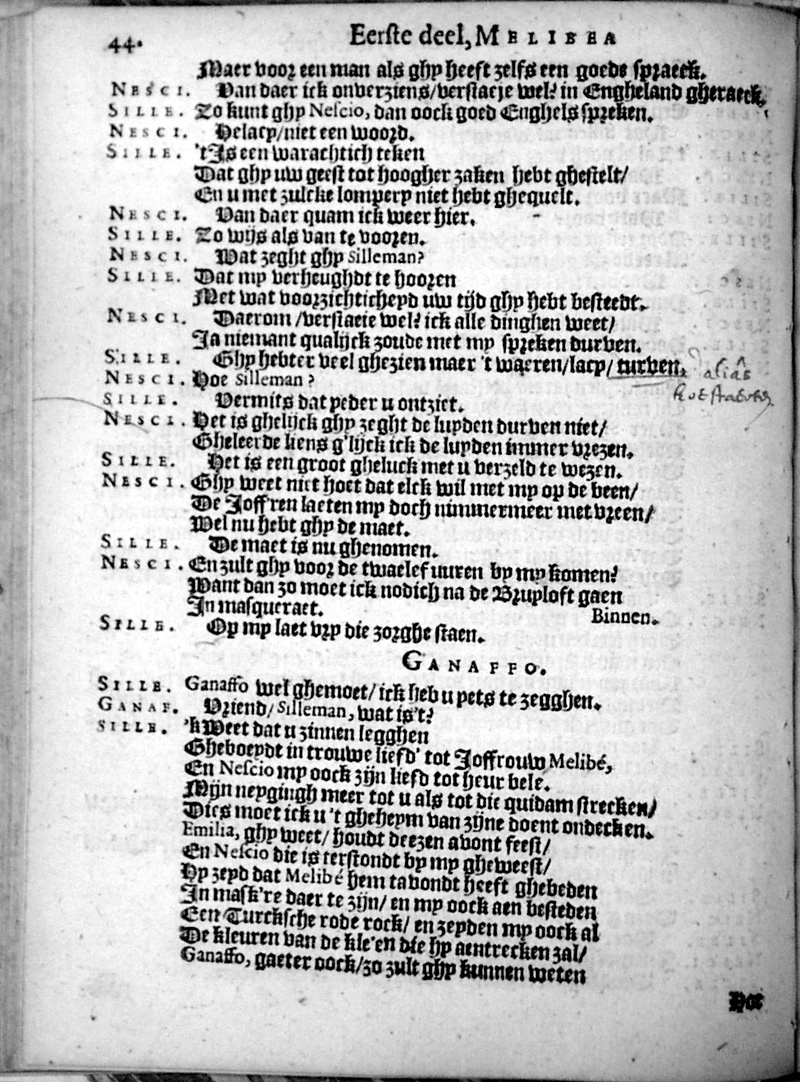 44.
Eerste deel, MELIBEA
Maer voor een man als ghy heeft zelfs een goede spraeck.
NESCI. Van daer ick onverziens/verstaeje wel? in Engheland gheraeck.
SILLE. Zo kunt ghy Nescio, dan oock goed Enghels spreken.
NESCI. Helacy/niet een woord.
SILLE. 't Is een warachtich teken
Dat ghy uw geest tot hoogher zaken hebt ghestelt/
En u met zulcke lompery niet hebt ghequelt.
NESCI. Van daer quam ick weer hier.
SILLE. Zo wijs als van te vooren.
NESCI. Wat zeght ghy Silleman?
SILLE. Dat my verheughdt te hooren
Met wat voorzichticheyd uw tijd ghy hebt besteedt.
NESCI. Daerom/verstaeie wel? ick alle dinghen weet/
Ja niemant qualijck zoude met my spreken durven.
SILLE. Ghy hebter veel ghezien maer 't waeren/lacy/turven.
alias
NESCI. Hoe Silleman?
SILLE. Vermits dat yeder u ontziet.
NESCI. Het is ghelijck ghy zeght de luyden durven niet/
Gheleerde liens g'lijck ick de luyden immer vrezen.
SILLE. Het is een groot gheluck met u verzeld te wezen.
NESCI. Ghy weet niet hoet dat elck wil met my op de been/
De Joff'ren laeten my doch nimmermeer met vreen/
Wel nu hebt ghy de maet.
SILLE. De maet is nu ghenomen.
NESCI. En zult ghy voor de twaelef uuren by my komen?
Want dan zo moet ick nodich na de Bruyloft gaen
In masqueraet.
Binnen.
SILLE. Op my laet vry die zorghe staen.
GANAFFO.
SILLE. Ganaffo wel ghemoet/ick heb u yets te zegghen.
GANAF. Vriend/Silleman, wat is't?
SILLE. 'k Weet dat u zinnen legghen
Gheboeydt in trouwe liefd' tot Joffrouw Melibé,
En Nescio my oock zijn liefd tot heur belé.
Mijn neygingh meer tot u als tot die quidam strecken/
Dies moet ick u 't gheheym van zijne doent ondecken.
Emilia, ghy weet/houdt deezen avont feest/
En Nescio die is terstondt by my gheweest/
Hy zeyd dat Melibé hem tavondt heeft ghebeden
In mask're daer te zijn/en my oock aen besteden
Een Turcksche rode rock/en zeyden my oock al
De kleuren van de kle'en die hy aentrecken zal/
Ganaffo, gaeter oock/zo zult ghy kunnen weten
Hoe